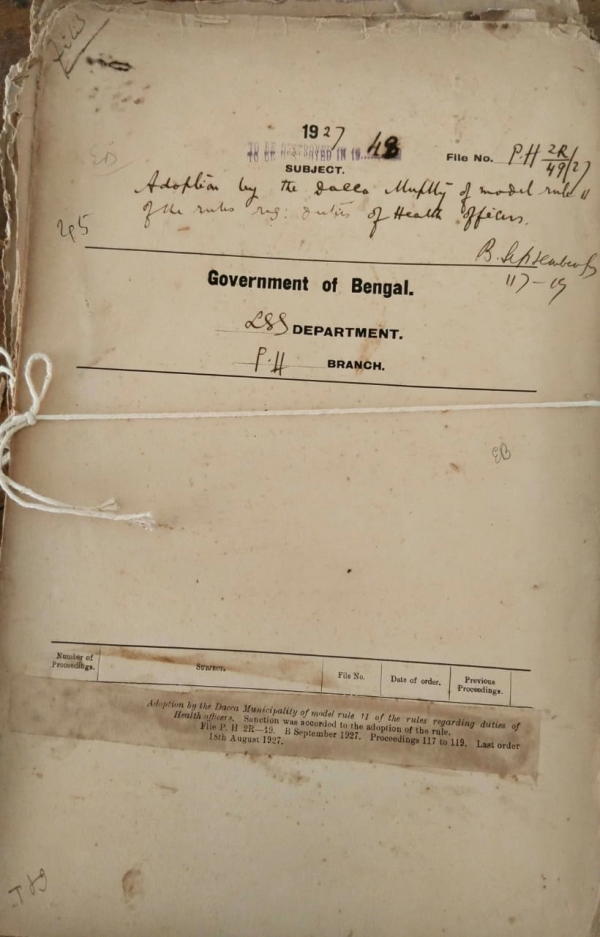 Files
1927
TO BE DESTROYED IN 19 48
File No. P.H 2R/49/27
SUBJECT.
Adoption by the Dacca Muplty of model rule 11
of the rules reg: duties of Health Officers.
295
B. September
117-19
Government of Bengal.
LSG DEPARTMENT.
P.H BRANCH.
EB
Number of Proceedings.
SUBJECT.
File No.
Date of order.
Previous Proceedings.
Adoption by the Dacca Municipality of model rule 11 of the rules regarding duties of
Health officers. Sanction was accorded to the adoption of the rule.
File P. H 2R—49. B September 1927. Proceedings 117 to 119. Last order
18th August 1927.